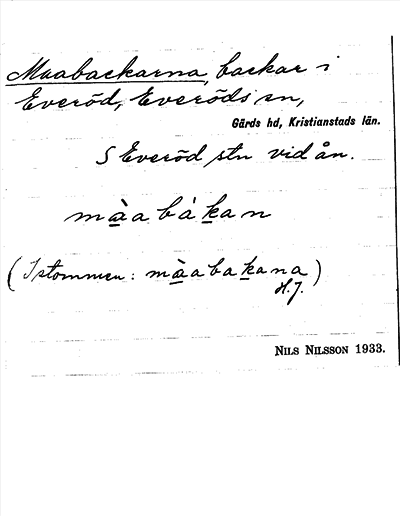 Maabackarna, backar i
Everöd, Everöds sn,
Gärds hd, Kristianstads län.
S Everöd stn vid ån.
màabákan
(I stommen: màabakana)
H.J.
NILS NILSSON 1933.